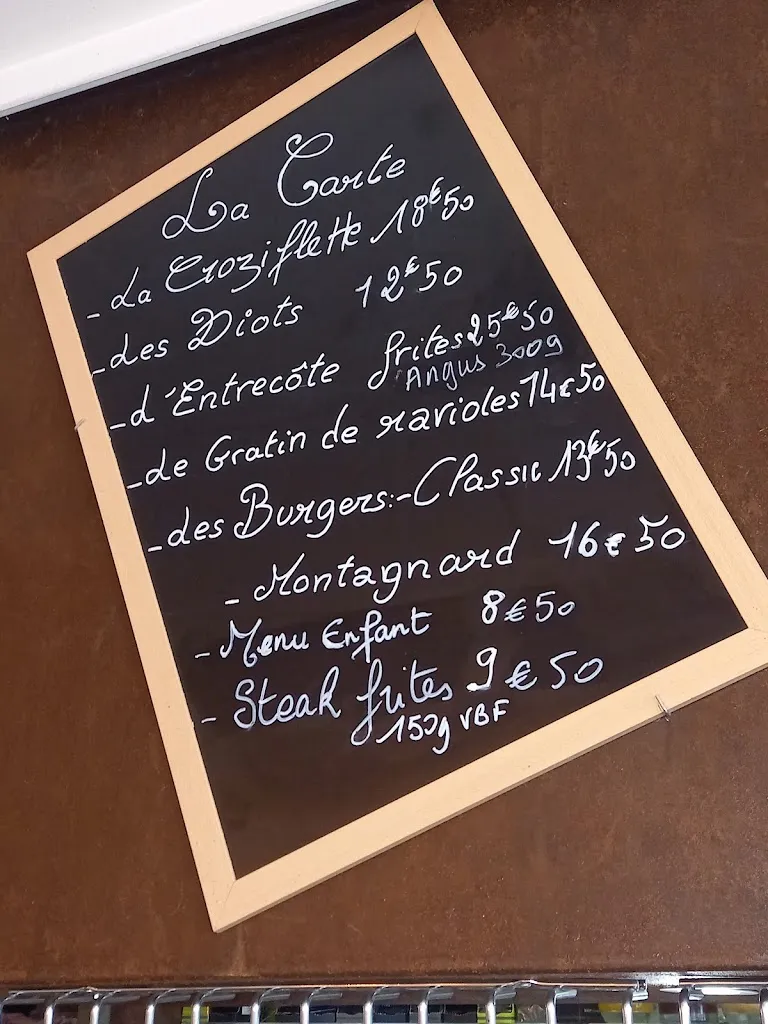 La Carte
- La Croziflette 18€50
- des Diots 12€50
- d'Entrecôte frites 25€50
Angus 300g
- de Gratin de ravioles 14€50
- des Burgers:- Classic 13€50
- Montagnard 16€50
- Menu Enfant 8€50
- Steak frites 9€50
150g VBF